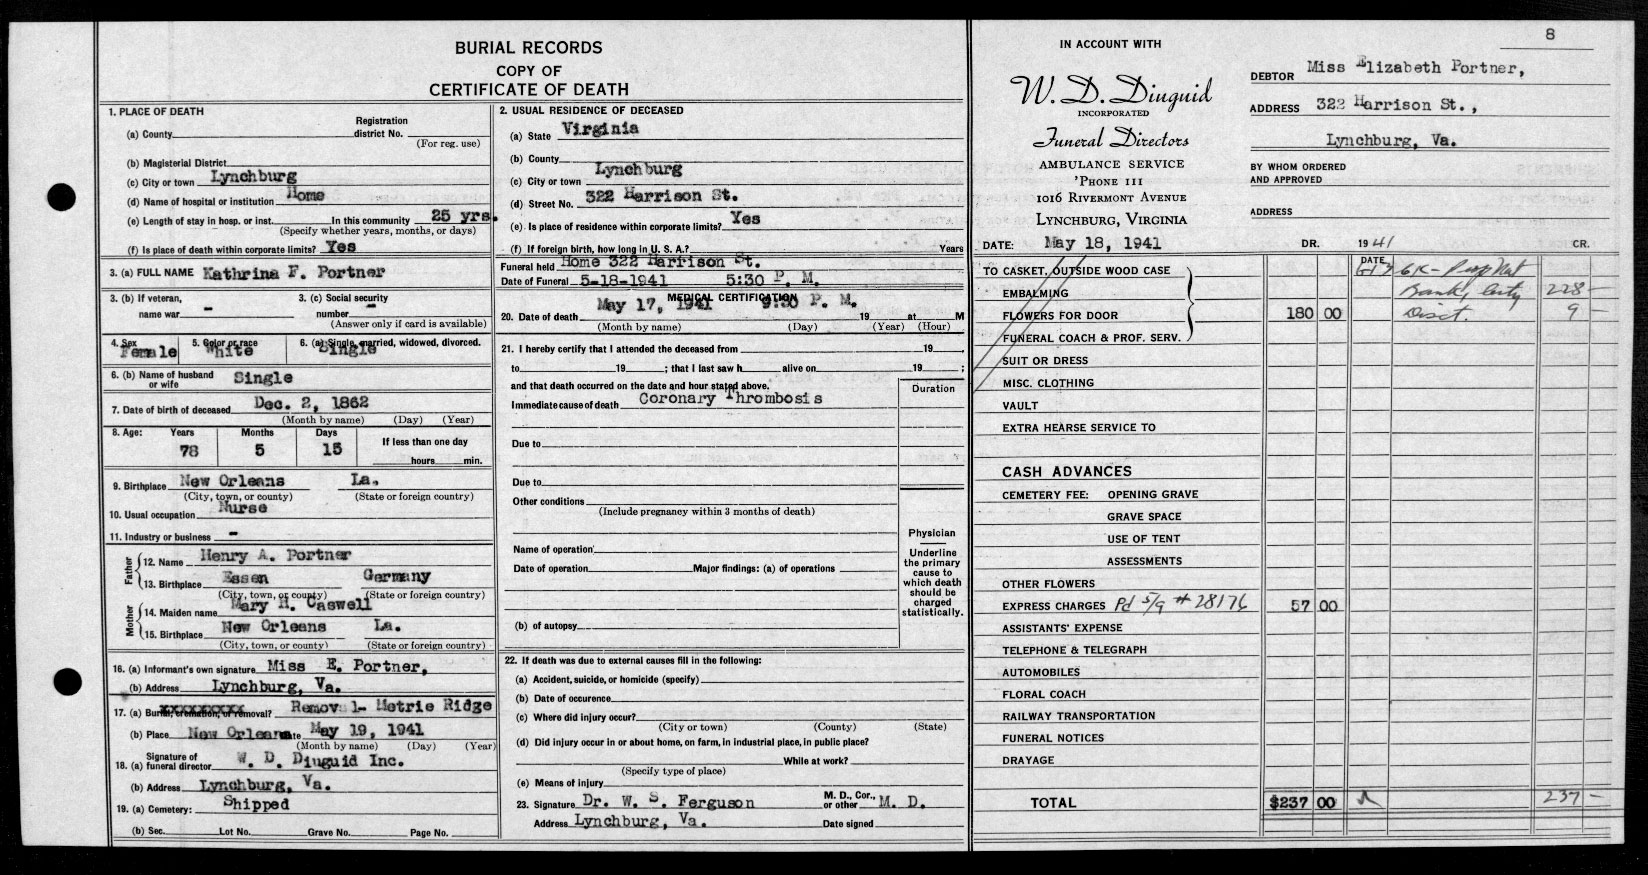 BURIAL RECORDS
COPY OF
CERTIFICATE OF DEATH
1. PLACE OF DEATH
(a) County
Registration district No.
(For reg. use)
(b) Magisterial District
(c) City or town Lynchburg
(d) Name of hospital or institution Home
(e) Length of stay in hosp. or inst. In this community 25 yrs.
(Specify whether years, months, or days)
(f) Is place of death within corporate limits? Yes
3. (a) FULL NAME Kathrina F. Portner
3. (b) If veteran, name war -
3. (c) Social security number -
(Answer only if card is available)
4. Sex Female
5. Color or race White
6. (a) Single, married, widowed, divorced. Single
6. (b) Name of husband or wife Single
7. Date of birth of deceased Dec. 2, 1862
(Month by name) (Day) (Year)
8. Age: Years Months Days If less than one day
78 5 15 hours min.
9. Birthplace New Orleans La.
(City, town, or county) (State or foreign country)
10. Usual occupation Nurse
11. Industry or business -
Father
12. Name Henry A. Portner
13. Birthplace Essen Germany
(City, town, or county) (State or foreign country)
Mother
14. Maiden name Mary H. Caswell
15. Birthplace New Orleans La.
(City, town, or county) (State or foreign country)
16. (a) Informant's own signature Miss E. Portner,
(b) Address Lynchburg, Va.
17. (a) Burial, cremation, or removal? Removal- Metrie Ridge
(b) Place New Orleans Date May 19, 1941
(Month by name) (Day) (Year)
18. (a) Signature of funeral director W. D. Diuguid Inc.
(b) Address Lynchburg, Va.
19. (a) Cemetery: Shipped
(b) Sec. Lot No. Grave No. Page No.
2. USUAL RESIDENCE OF DECEASED
(a) State Virginia
(b) County
(c) City or town Lynchburg
(d) Street No. 322 Harrison St.
(e) Is place of residence within corporate limits? Yes
(f) If foreign birth, how long in U. S. A.? Years
Funeral held Home 322 Harrison St.
Date of Funeral 5-18-1941 5:30 P. M.
MEDICAL CERTIFICATION
20. Date of death May 17, 1941 9:30 P. M. 19 at M
(Month by name) (Day) (Year) (Hour)
21. I hereby certify that I attended the deceased from 19 ,
to 19 ; that I last saw h alive on 19 ;
and that death occurred on the date and hour stated above.
Duration
Immediate cause of death Coronary Thrombosis
Due to
Due to
Other conditions
(Include pregnancy within 3 months of death)
Physician
Underline the primary cause to which death should be charged statistically.
Name of operation
Date of operation Major findings: (a) of operations
(b) of autopsy
22. If death was due to external causes fill in the following:
(a) Accident, suicide, or homicide (specify)
(b) Date of occurence
(c) Where did injury occur?
(City or town) (County) (State)
(d) Did injury occur in or about home, on farm, in industrial place, in public place?
While at work?
(Specify type of place)
(e) Means of injury
23. Signature Dr. W. S. Ferguson M. D., Cor., or other M. D.
Address Lynchburg, Va. Date signed
8
IN ACCOUNT WITH
W. D. Diuguid
INCORPORATED
Funeral Directors
AMBULANCE SERVICE
'PHONE 111
1016 RIVERMONT AVENUE
LYNCHBURG, VIRGINIA
DEBTOR Miss Elizabeth Portner,
ADDRESS 322 Harrison St.,
Lynchburg, Va.
BY WHOM ORDERED AND APPROVED
ADDRESS
DATE: May 18, 1941 DR. 1941 CR.
DATE
TO CASKET, OUTSIDE WOOD CASE
EMBALMING 228 -
FLOWERS FOR DOOR 180 00 Disct. 9 -
FUNERAL COACH & PROF. SERV.
SUIT OR DRESS
MISC. CLOTHING
VAULT
EXTRA HEARSE SERVICE TO
CASH ADVANCES
CEMETERY FEE: OPENING GRAVE
GRAVE SPACE
USE OF TENT
ASSESSMENTS
OTHER FLOWERS
EXPRESS CHARGES Pd 5/9 # 28176 57 00
ASSISTANTS' EXPENSE
TELEPHONE & TELEGRAPH
AUTOMOBILES
FLORAL COACH
RAILWAY TRANSPORTATION
FUNERAL NOTICES
DRAYAGE
TOTAL $237 00 237 -